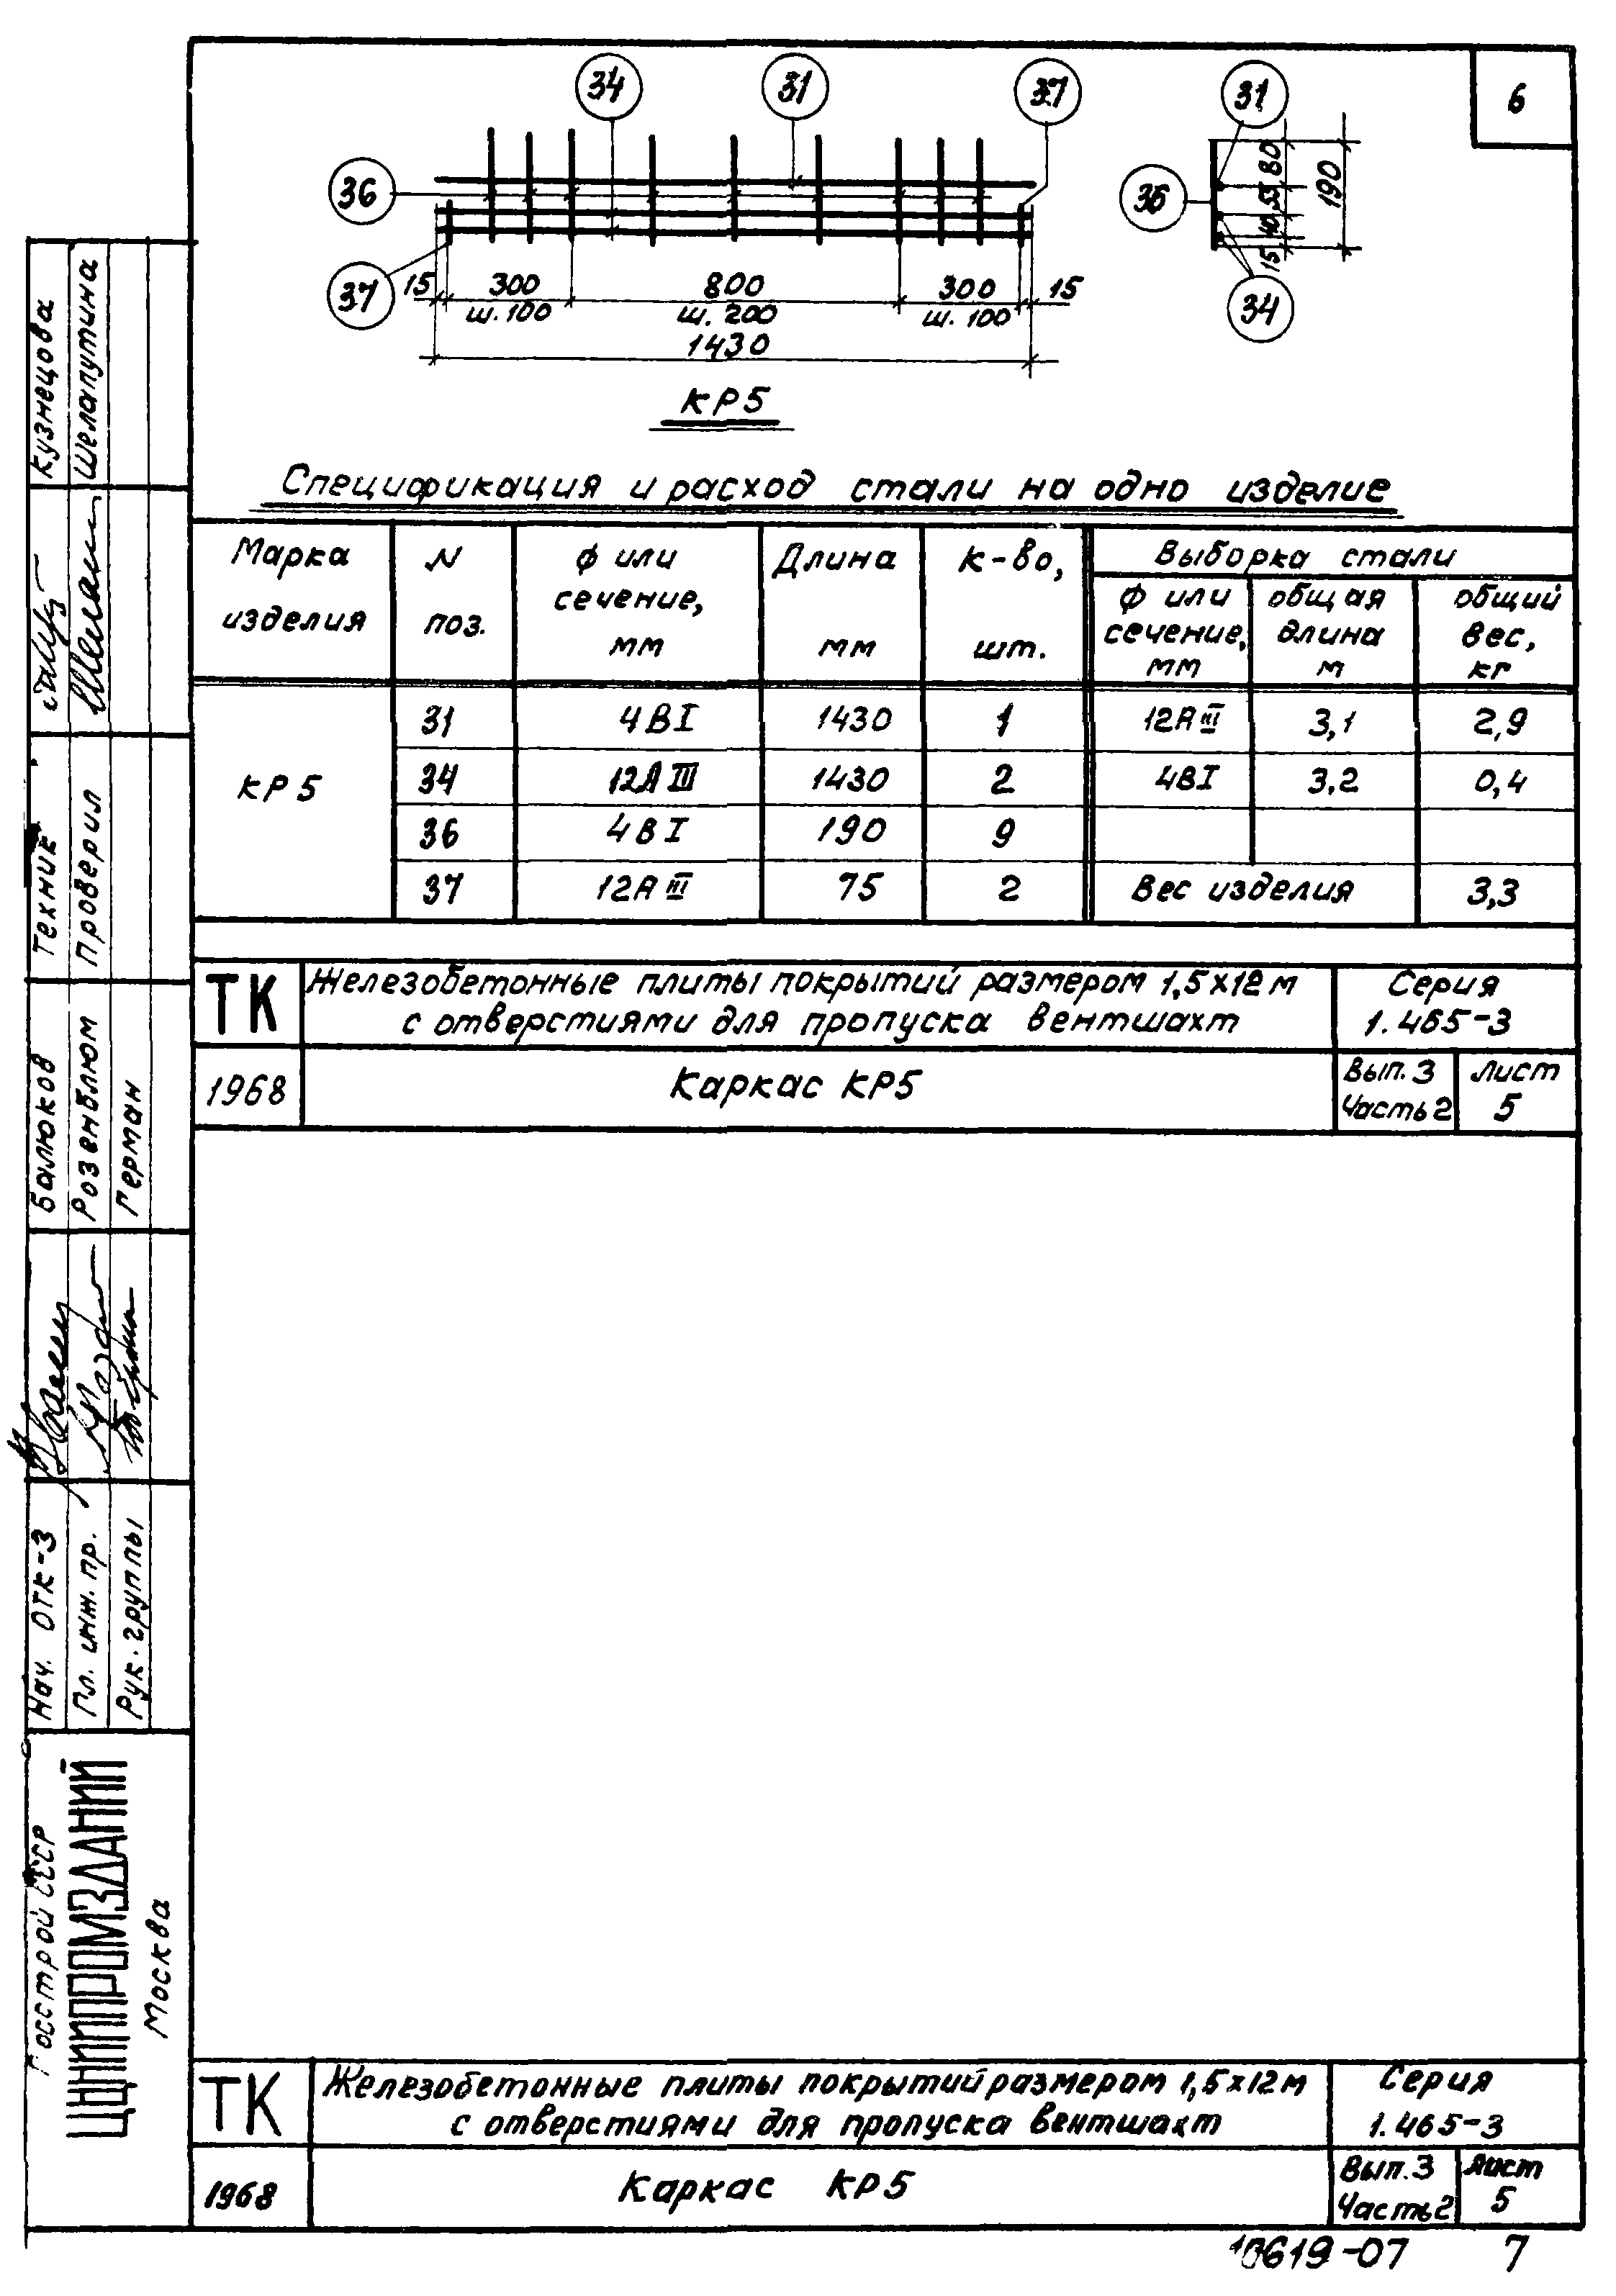 6
34 31 37 31
36 36
37 34
15 300 800 300 15
ш. 100 ш. 200 ш. 100
1430
80 55 40 15 190
КР5
Спецификация и расход стали на одно изделие
Марка изделия
N поз.
ф или сечение, мм
Длина мм
к-во, шт.
Выборка стали
ф или сечение, мм
общая длина м
общий вес, кг
КР5
31 4ВI 1430 1 12АIII 3,1 2,9
34 12АIII 1430 2 4ВI 3,2 0,4
36 4ВI 190 9
37 12АIII 75 2 Вес изделия 3,3
ТК
Железобетонные плиты покрытий размером 1,5х12м
с отверстиями для пропуска вентшахт
Серия
1.465-3
1968
Каркас КР5
Вып.3
Часть2
лист
5
Кузнецова
Шелапутина
Техник
Проверил
Балюков
Розенблюм
Герман
Нач. ОТК-3
Гл. инж. пр.
Рук. группы
Госстрой СССР
ЦНИИПРОМЗДАНИЙ
Москва
ТК
Железобетонные плиты покрытий размером 1,5х12м
с отверстиями для пропуска вентшахт
Серия
1.465-3
1968
Каркас КР5
Вып.3
Часть2
лист
5
10619-07 7